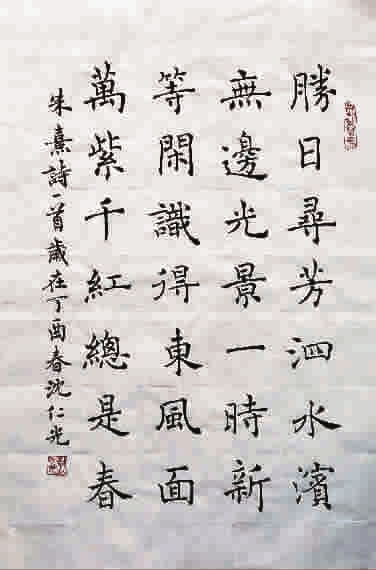 勝日尋芳泗水濱
無邊光景一時新
等閑識得東風面
萬紫千紅總是春
朱熹詩一首歲在丁酉春沈仁光